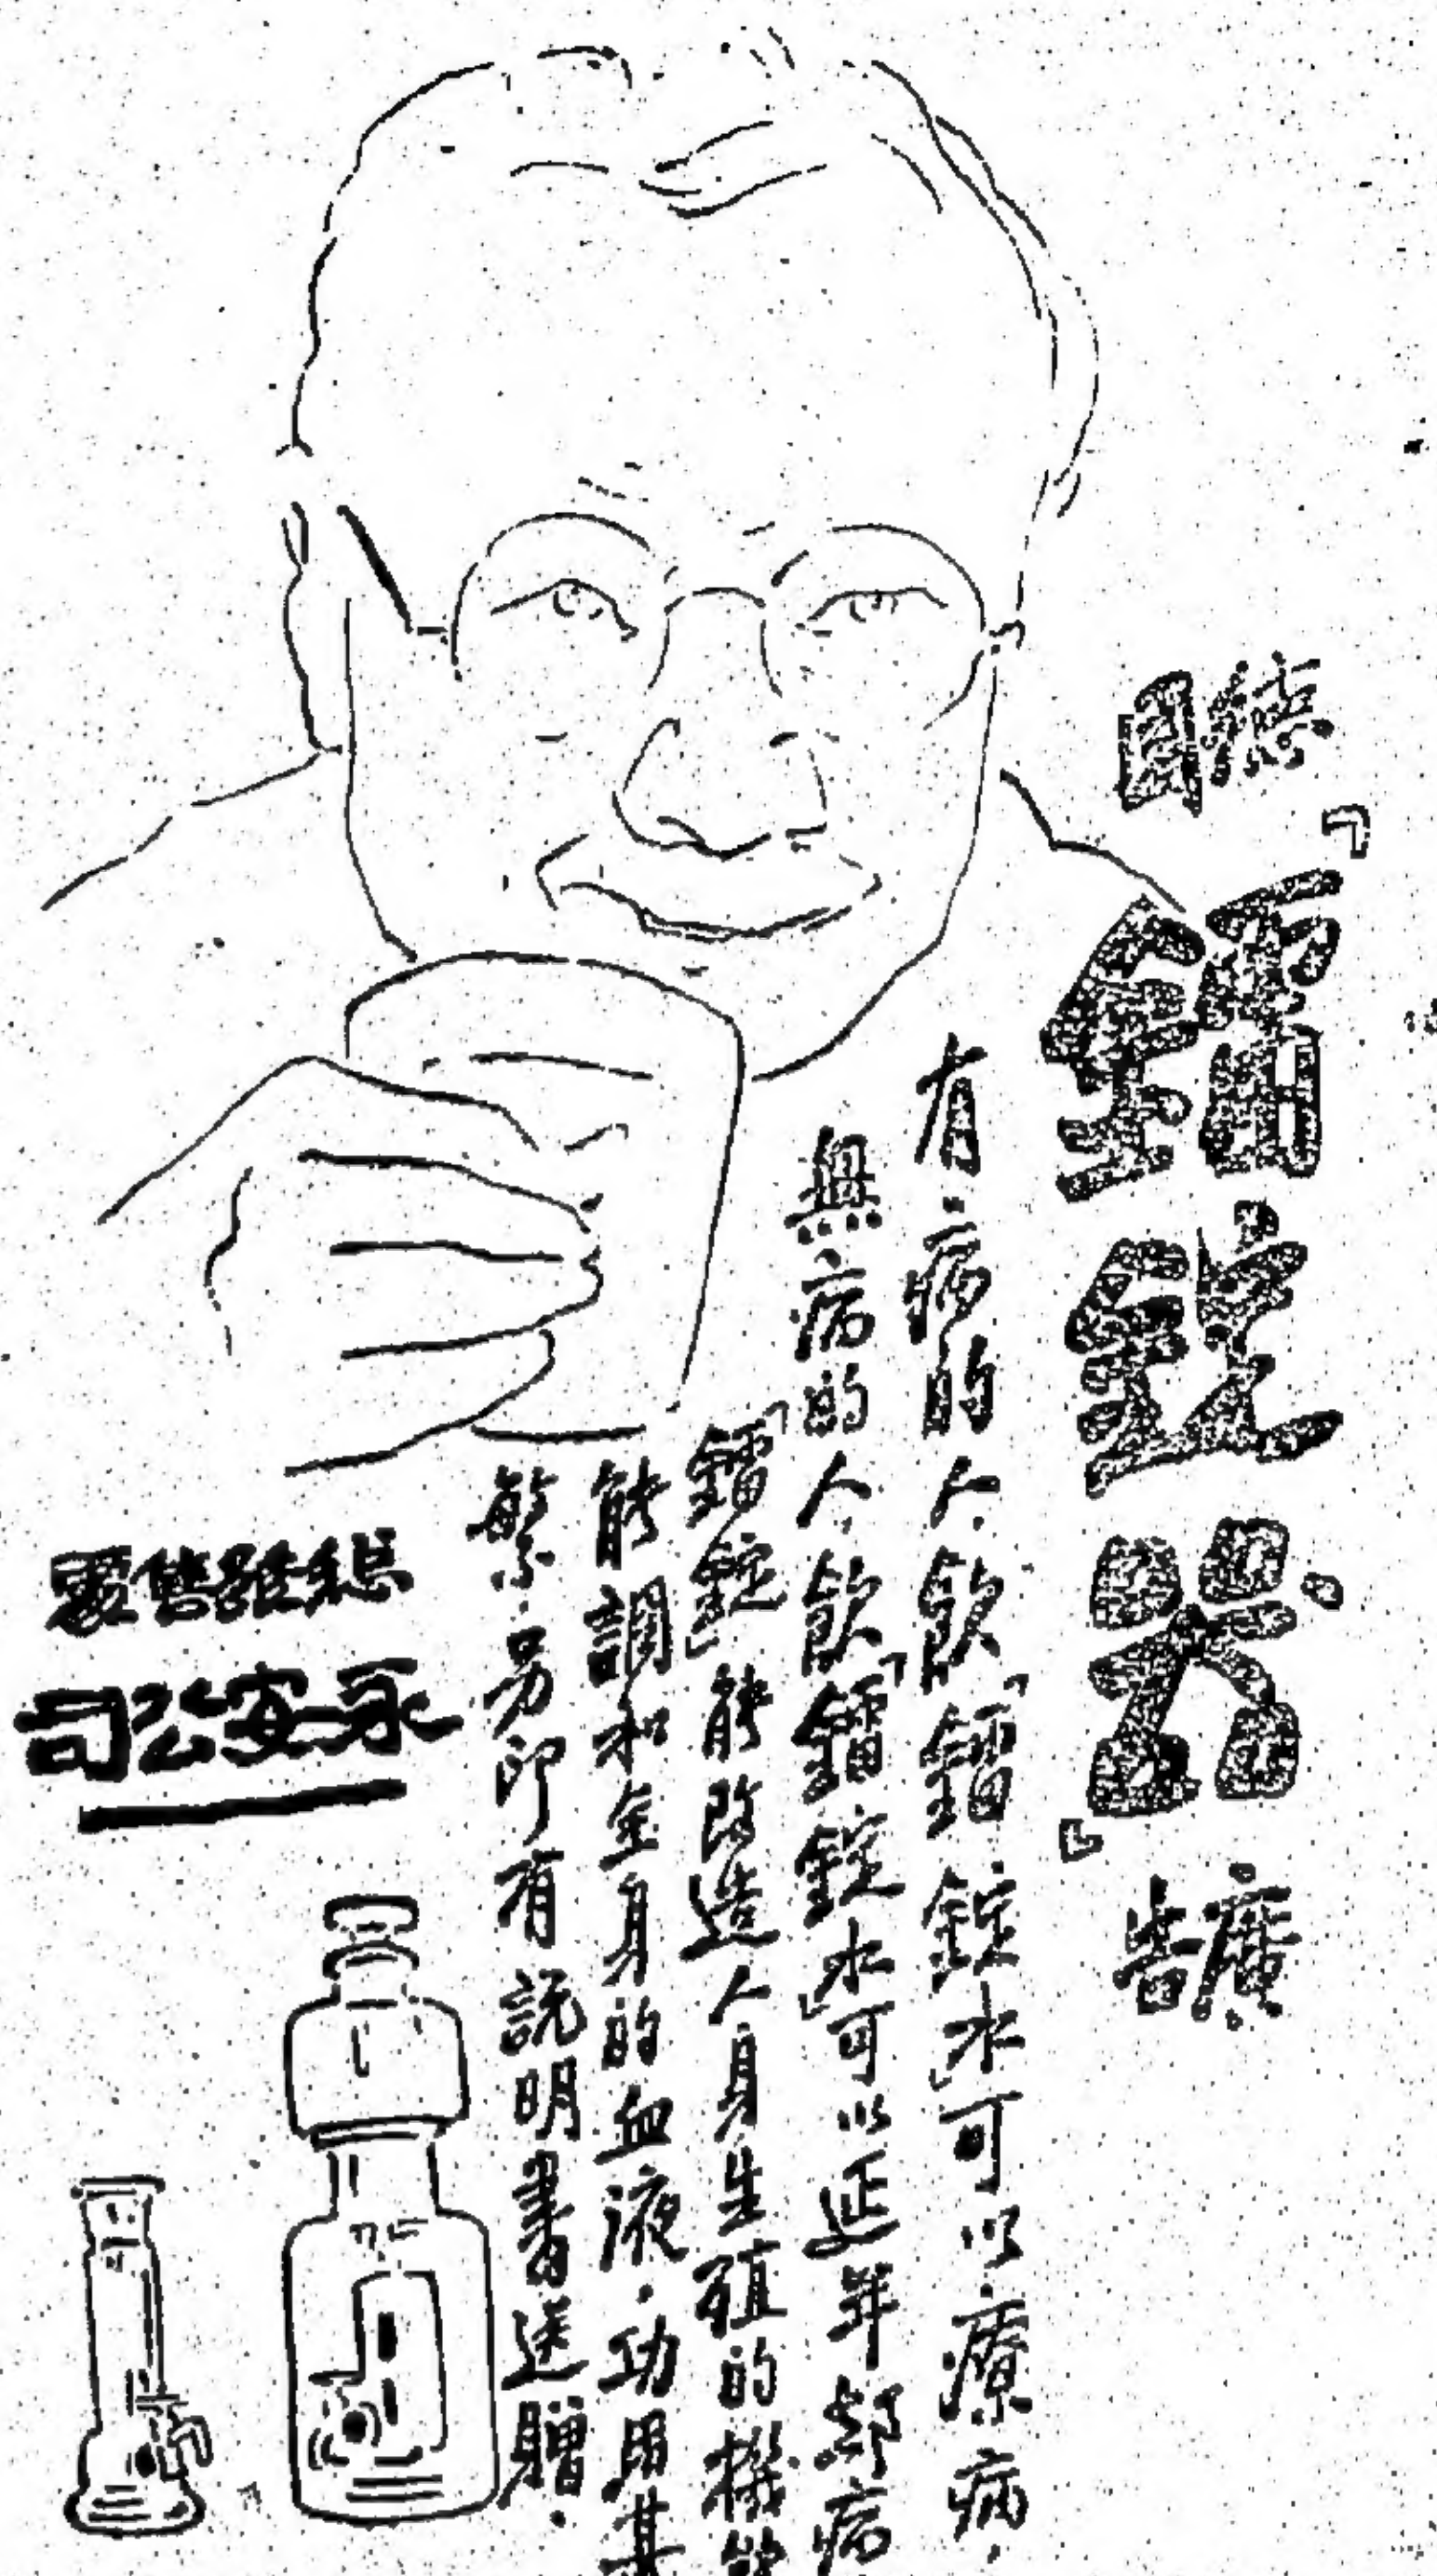 德國
「鐳錠器」
廣告
有病的人飲「鐳錠水」可以療病．
無病的人飲「鐳錠水」可以延年卻病
「鐳錠」能改造人身生殖的機能
能調和全身的血液．功用甚
繁．另印有説明書送贈．
總經售處
永安公司